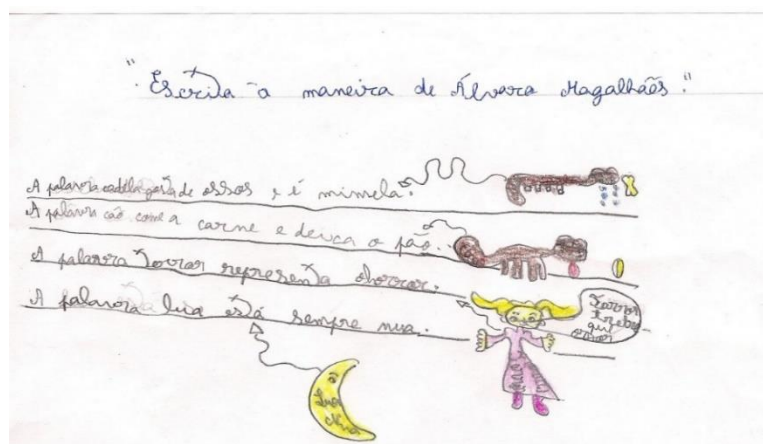 "Escrita à maneira de Álvaro Magalhães."
A palavra cadela gosta de ossos e é mimela.
A palavra cão come a carne e deixa o pão.
A palavra torrar representa
A palavra lua está sempre nua.